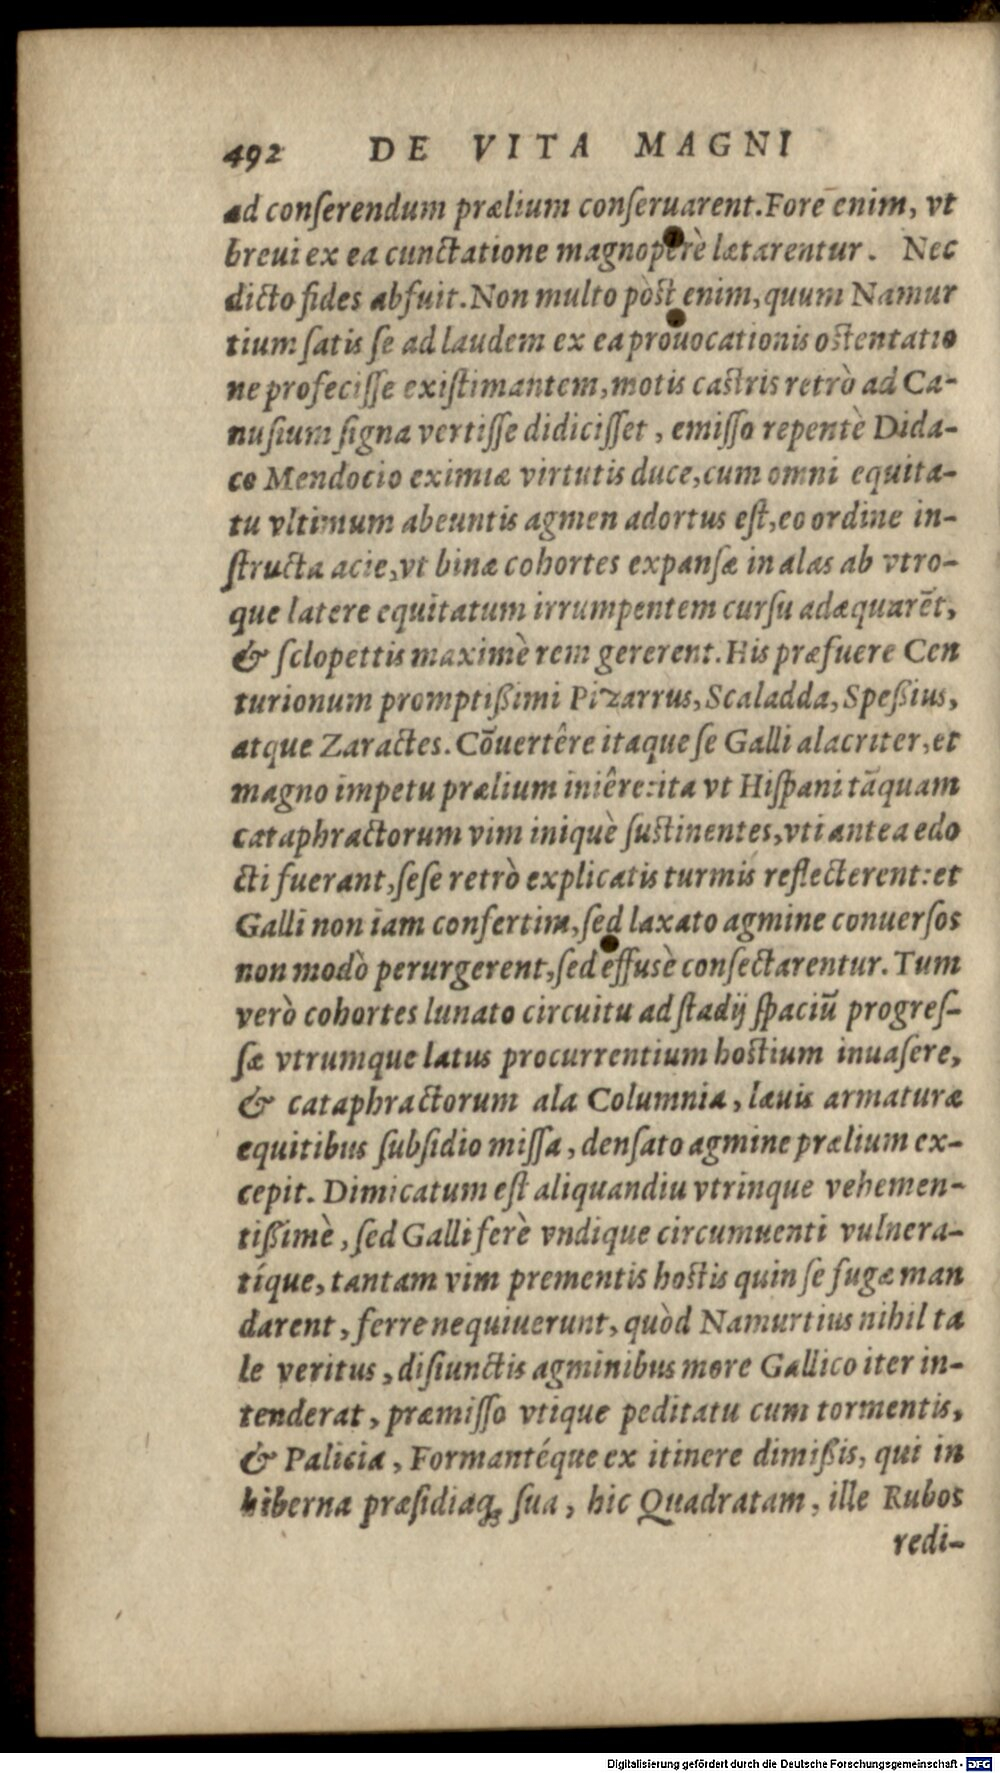 492 DE VITA MAGNI
ad conſerendum prælium conſeruarent. Fore enim, vt
breui ex ea cunctatione magnoperè lætarentur. Nec
dicto fides abfuit. Non multo pòst enim, quum Namur
tium ſatis ſe ad laudem ex ea prouocationis ostentatio
ne profeciſſe exiſtimantem, motis castris retrò ad Ca-
nuſium ſigna vertiſſe didiciſſet, emiſſo repentè Dida-
co Mendocio eximiæ virtutis duce, cum omni equita-
tu vltimum abeuntis agmen adortus eſt, eo ordine in-
ſtructa acie, vt binæ cohortes expanſæ in alas ab vtro-
que latere equitatum irrumpentem curſu adæquarēt,
& ſclopettis maximè rem gererent. His præfuere Cen
turionum promptißimi Pizarrus, Scaladda, Speßius,
atque Zaractes. Cōuertêre itaque ſe Galli alacriter, et
magno impetu prælium iniêre: ita vt Hiſpani tāquam
cataphractorum vim iniquè ſustinentes, vti antea edo
cti fuerant, ſeſe retrò explicatis turmis reflecterent: et
Galli non iam confertim, ſed laxato agmine conuerſos
non modò perurgerent, ſed effusè conſectarentur. Tum
verò cohortes lunato circuitu ad ſtadij ſpaciū progreſ-
ſæ vtrumque latus procurrentium hostium inuaſere,
& cataphractorum ala Columnia, læuis armaturæ
equitibus ſubſidio miſſa, denſato agmine prælium ex-
cepit. Dimicatum eſt aliquandiu vtrinque vehemen-
tißimè, ſed Galli ferè vndique circumuenti vulnera-
tíque, tantam vim prementis hostis quin ſe fugæ man
darent, ferre nequiuerunt, quòd Namurtius nihil ta
le veritus, diſiunctis agminibus more Gallico iter in-
tenderat, præmiſſo vtique peditatu cum tormentis,
& Palicia, Formantéque ex itinere dimißis, qui in
hiberna præſidiaq; ſua, hic Quadratam, ille Rubos
redi-
Digitalisierung gefördert durch die Deutsche Forschungsgemeinschaft - DFG